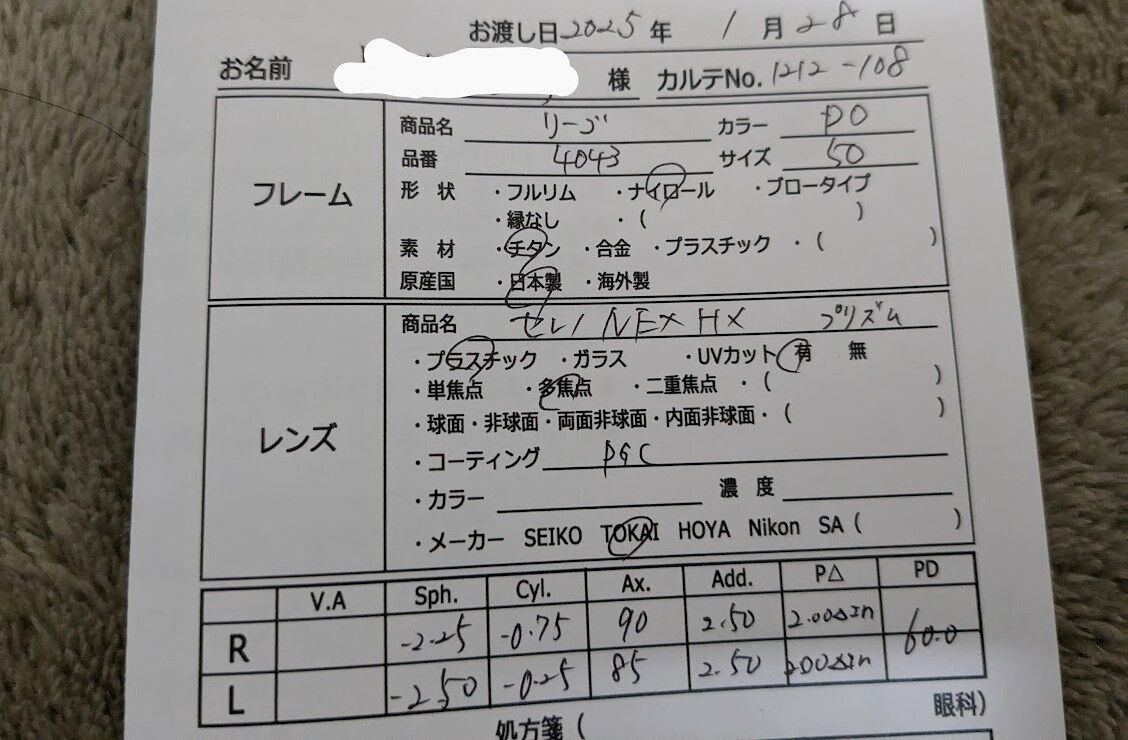 お渡し日2025年 1月28日
お名前 様 カルテNo.1212-108
フレーム
商品名 リーゴ カラー PO
品番 4043 サイズ 50
形 状 ・フルリム ・ナイロール ・ブロータイプ
・縁なし ・( )
素 材 ・チタン ・合金 ・プラスチック ・( )
原産国 ・日本製 ・海外製
レンズ
商品名 セレノNEX HX プリズム
・プラスチック ・ガラス ・UVカット 有 無
・単焦点 ・多焦点 ・二重焦点 ・( )
・球面・非球面・両面非球面・内面非球面・( )
・コーティング PGC
・カラー 濃 度
・メーカー SEIKO TOKAI HOYA Nikon SA( )
V.A Sph. Cyl. Ax. Add. P△ PD
R -2.25 -0.75 90 2.50 2.00△In 60.0
L -2.50 -0.25 85 2.50 2.00△In
処方箋( 眼科)